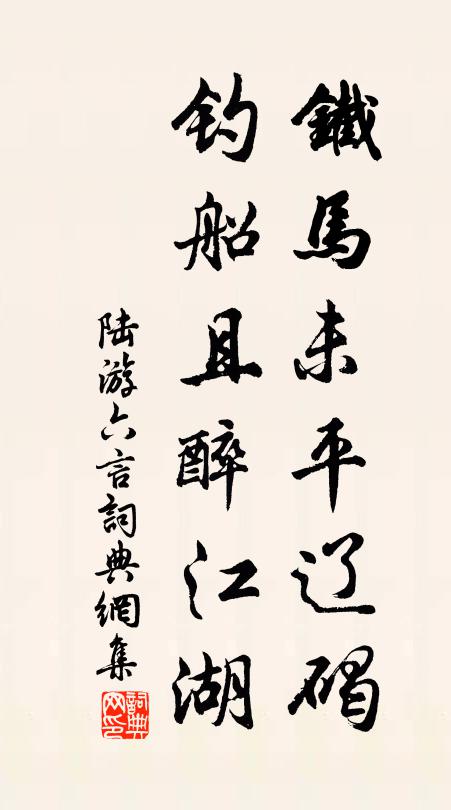 鐵馬未平辽碣
钓船且醉江湖
陆游六言詞典網集
詞典网印